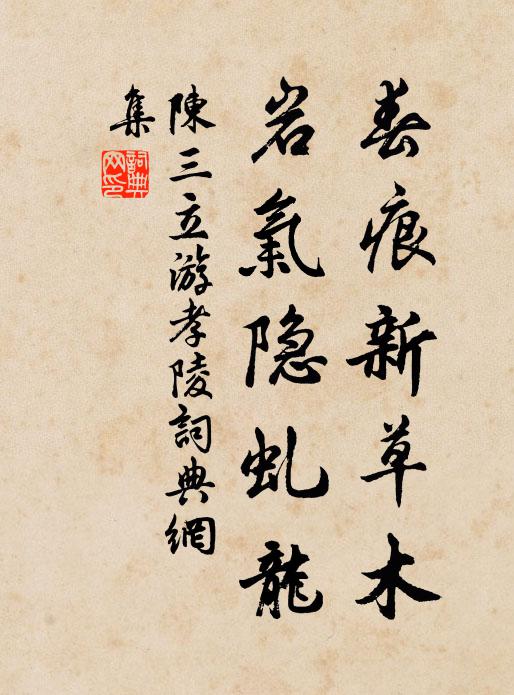 春痕新草木
岩氣隐虬龍
陳三立游孝陵詞典網
集
詞典
网印